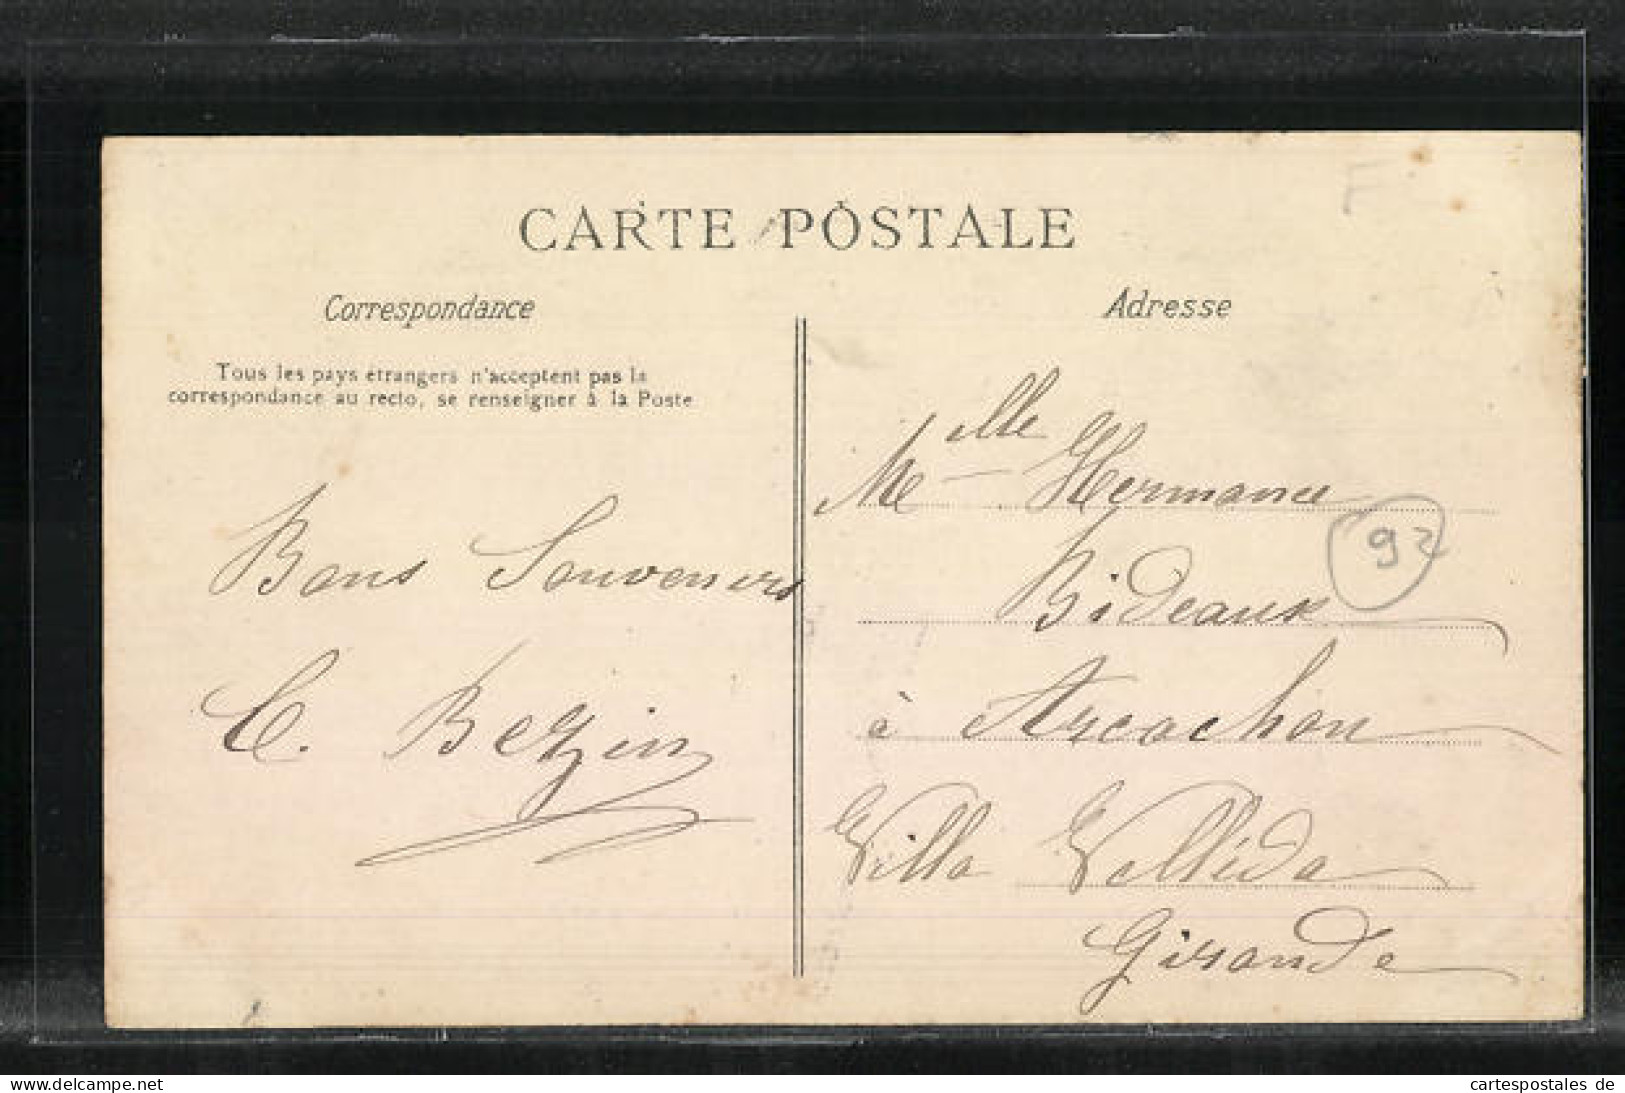 F
CARTE POSTALE
Correspondance
Tous les pays étrangers n'acceptent pas la
correspondance au recto, se renseigner à la Poste
Bons Souvenirs
C. Bezin
Adresse
Melle Hermance
Bideaux
92
à Arcachon
Villa Velléda
Gironde
delcampe.net
cartespostales de